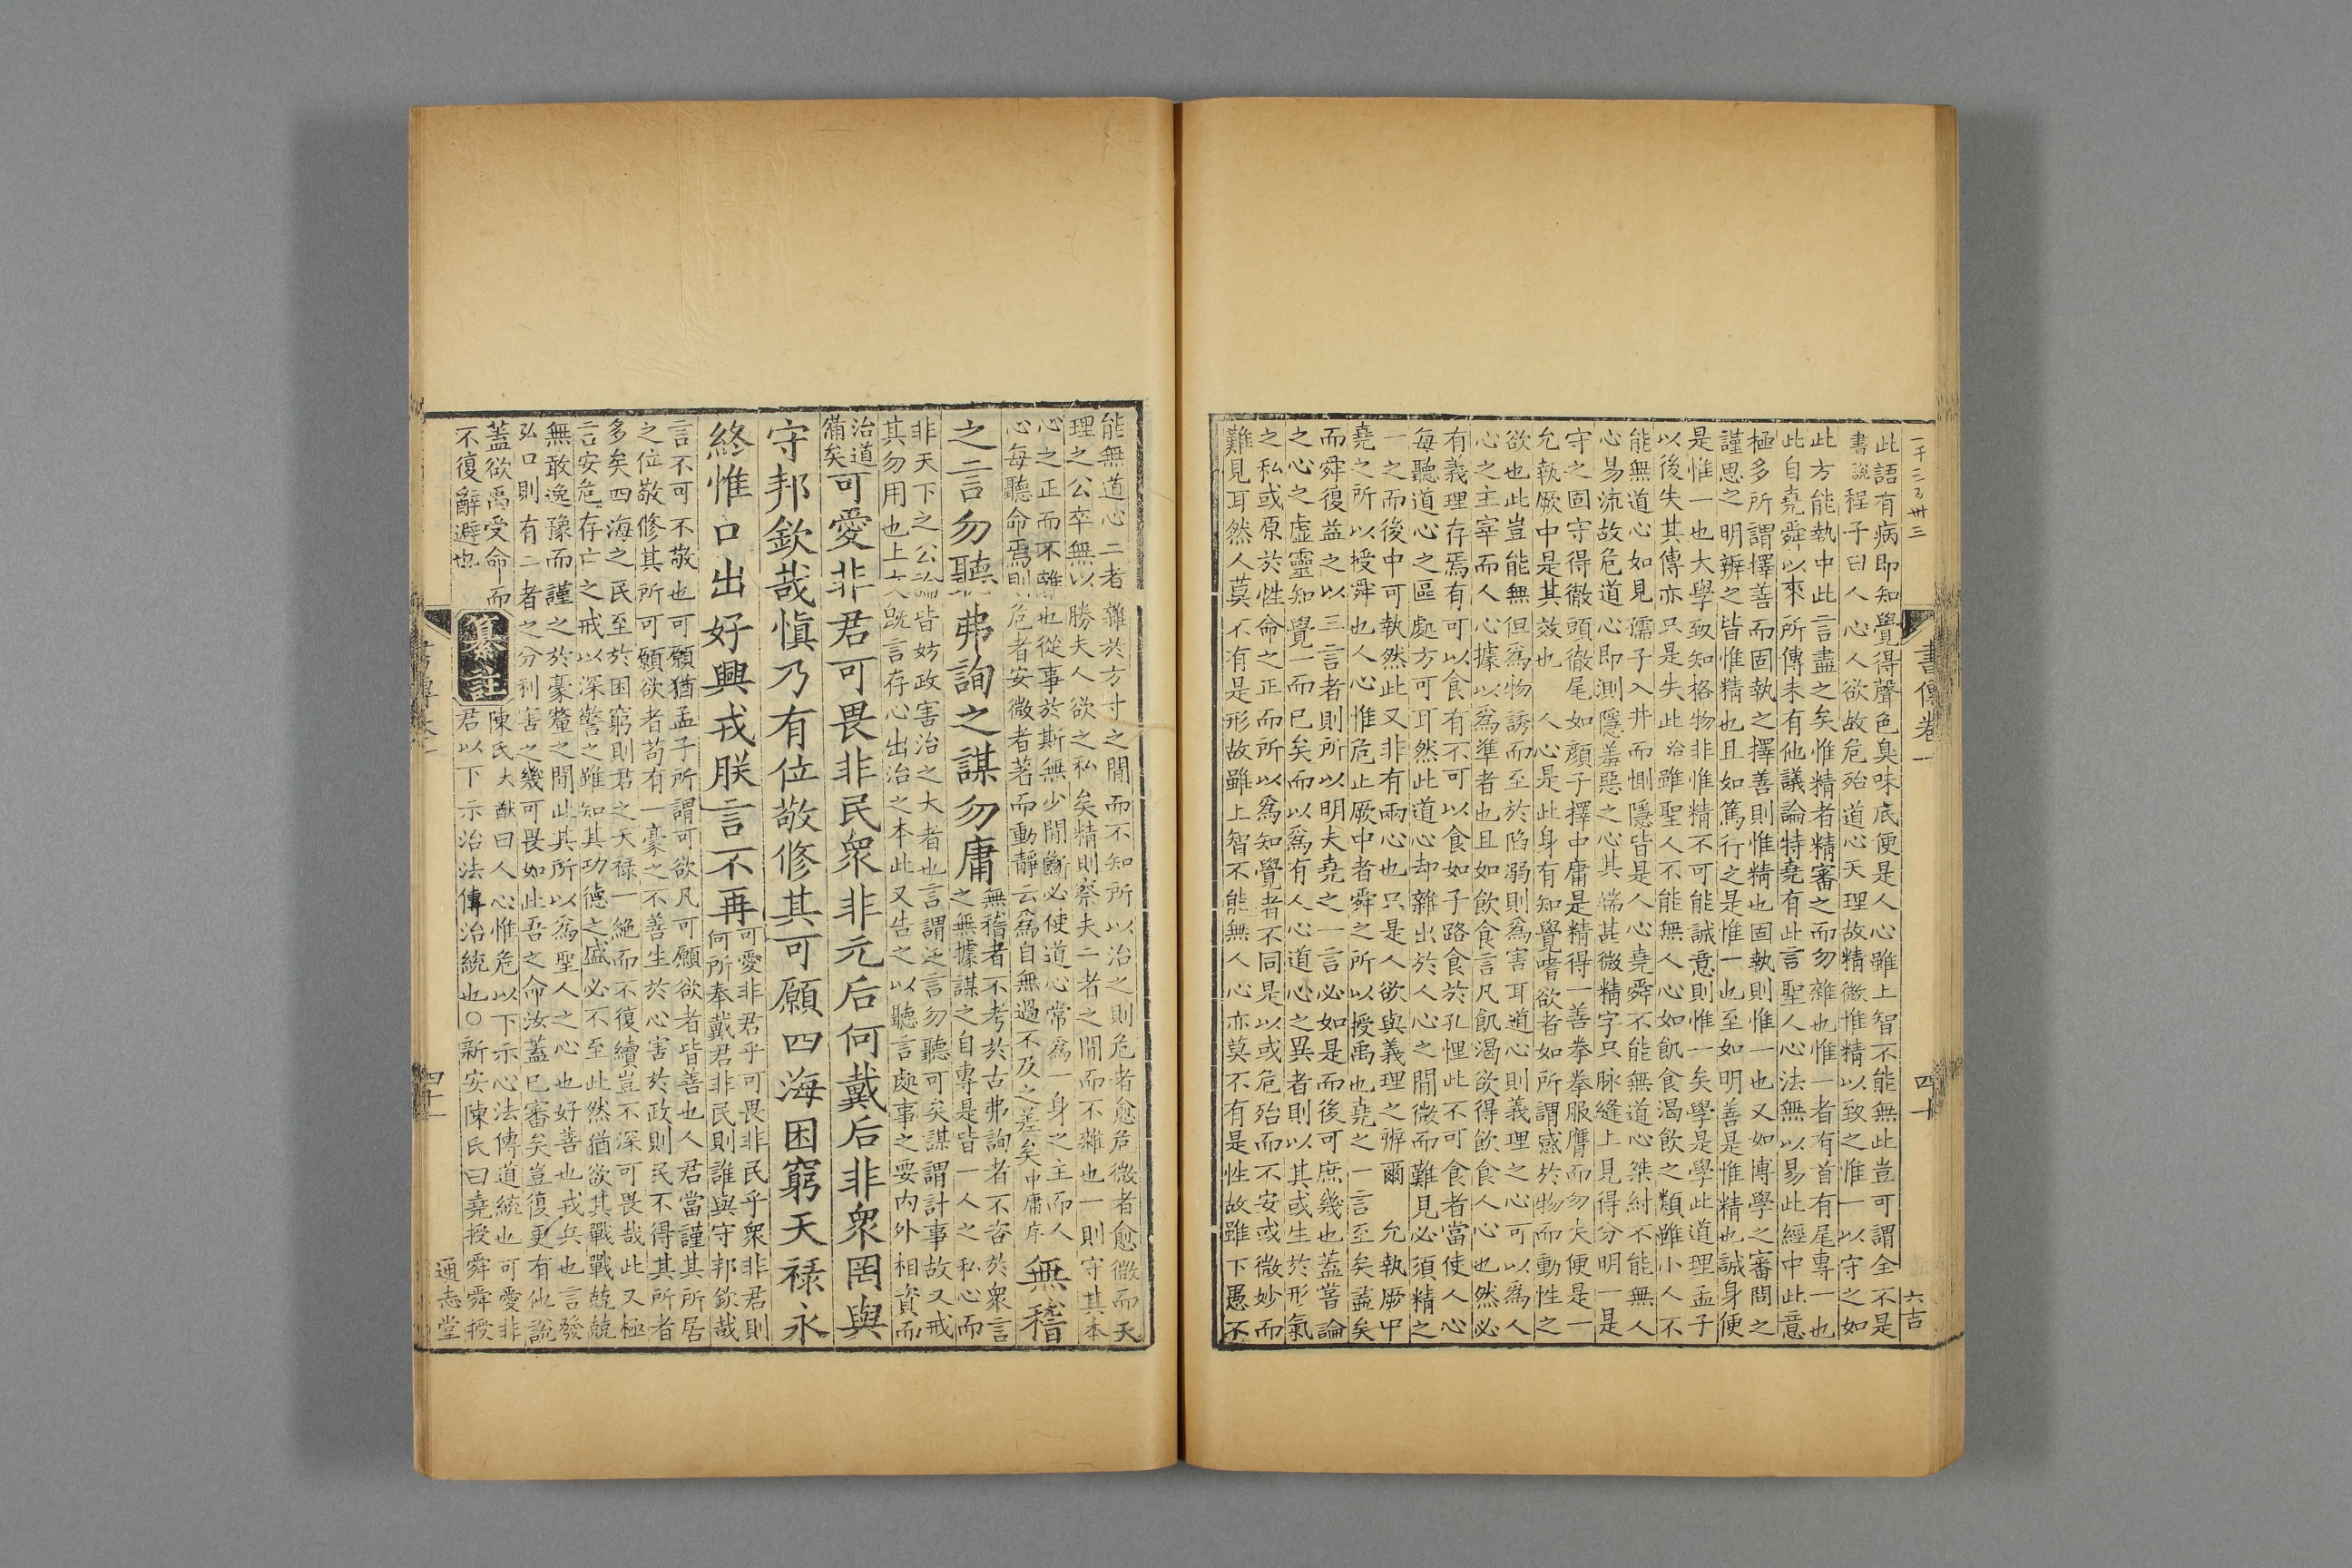 一千三百卅三
書傳卷一
四十
六吉
此語有病即知覺得聲色臭味底便是人心雖上智不能無此豈可謂全不是
書說程子曰人心人欲故危殆道心天理故精微惟精以致之惟一以守之如
此方能執中此言盡之矣惟精者精審之而勿雜也惟一者有首有尾專一也
此自堯舜以來所傳未有他議論特堯有此言聖人心法無以易此經中此意
極多所謂擇善而固執之擇善則惟精也固執則惟一也又如博學之審問之
謹思之明辨之皆惟精也且如篤行之是惟一也至如明善是惟精也誠身便
是惟一也大學致知格物非惟精不可能誠意則惟一矣學是學此道理孟子
以後失其傳亦只是失此洽雖聖人不能無人心如飢食渴飲之類雖小人不
能無道心如見孺子入井而惻隱皆是人心堯舜不能無道心桀紂不能無人
心易流故危道心即測隱羞惡之心其端甚微精字只脉縫上見得分明一是
守之固守得徹頭徹尾如顏子擇中庸是精得一善拳拳服膺而勿失便是一
允執厥中是其效也　人心是此身有知覺嗜欲者如所謂感於物而動性之
欲也此豈能無但爲物誘而至於陷溺則爲害耳道心則義理之心可以爲人
心之主宰而人心據以爲準者也且如飲食言凡飢渴欲得飲食人心也然必
有義理存焉有可以食有不可以食如子路食於孔悝此不可食者當使人心
每聽道心之區處方可耳然此道心却雜出於人心之間微而難見必須精之
一之而後中可執然此又非有兩心也只是人欲與義理之辨爾　允執厥中
堯之所以授舜也人心惟危止厥中者舜之所以授禹也堯之一言至矣盡矣
而舜復益之以三言者則所以明夫堯之一言必如是而後可庶幾也蓋嘗論
之心之虛靈知覺一而已矣而以爲有人心道心之異者則以其或生於形氣
之私或原於性命之正而所以爲知覺者不同是以或危殆而不安或微妙而
難見耳然人莫不有是形故雖上智不能無人心亦莫不有是性故雖下愚不
能無道心二者雜於方寸之間而不知所以治之則危者愈危微者愈微而天
理之公卒無以勝夫人欲之私矣精則察夫二者之間而不雜也一則守其本
心之正而不離也從事於斯無少間斷必使道心常爲一身之主而人
心每聽命焉則危者安微者著而動靜云爲自無過不及之差矣中庸序
無稽
之言勿聽弗詢之謀勿庸
無稽者不考於古弗詢者不咨於衆言
之無據謀之自專是皆一人之私心而
非天下之公論皆妨政害治之大者也言謂泛言勿聽可矣謀謂計事故又戒
其勿用也上文既言存心出治之本此又告之以聽言處事之要內外相資而
治道
備矣
可愛非君可畏非民衆非元后何戴后非衆罔與
守邦欽哉愼乃有位敬修其可願四海困窮天祿永
終惟口出好興戎朕言不再
可愛非君乎可畏非民乎衆非君則
何所奉戴君非民則誰與守邦欽哉
言不可不敬也可願猶孟子所謂可欲凡可願欲者皆善也人君當謹其所居
之位敬修其所可願欲者苟有一豪之不善生於心害於政則民不得其所者
多矣四海之民至於困窮則君之天祿一絕而不復續豈不深可畏哉此又極
言安危存亡之戒以深警之雖知其功德之盛必不至此然猶欲其戰戰兢兢
無敢逸豫而謹之於豪釐之間此其所以爲聖人之心也好善也戎兵也言發
於口則有二者之分利害之幾可畏如此吾之命汝蓋已審矣豈復更有他說
蓋欲禹受命而
不復辭避也
纂註
陳氏大猷曰人心惟危以下示心法傳道統也可愛非
君以下示治法傳治統也○新安陳氏曰堯授舜舜授
通志堂